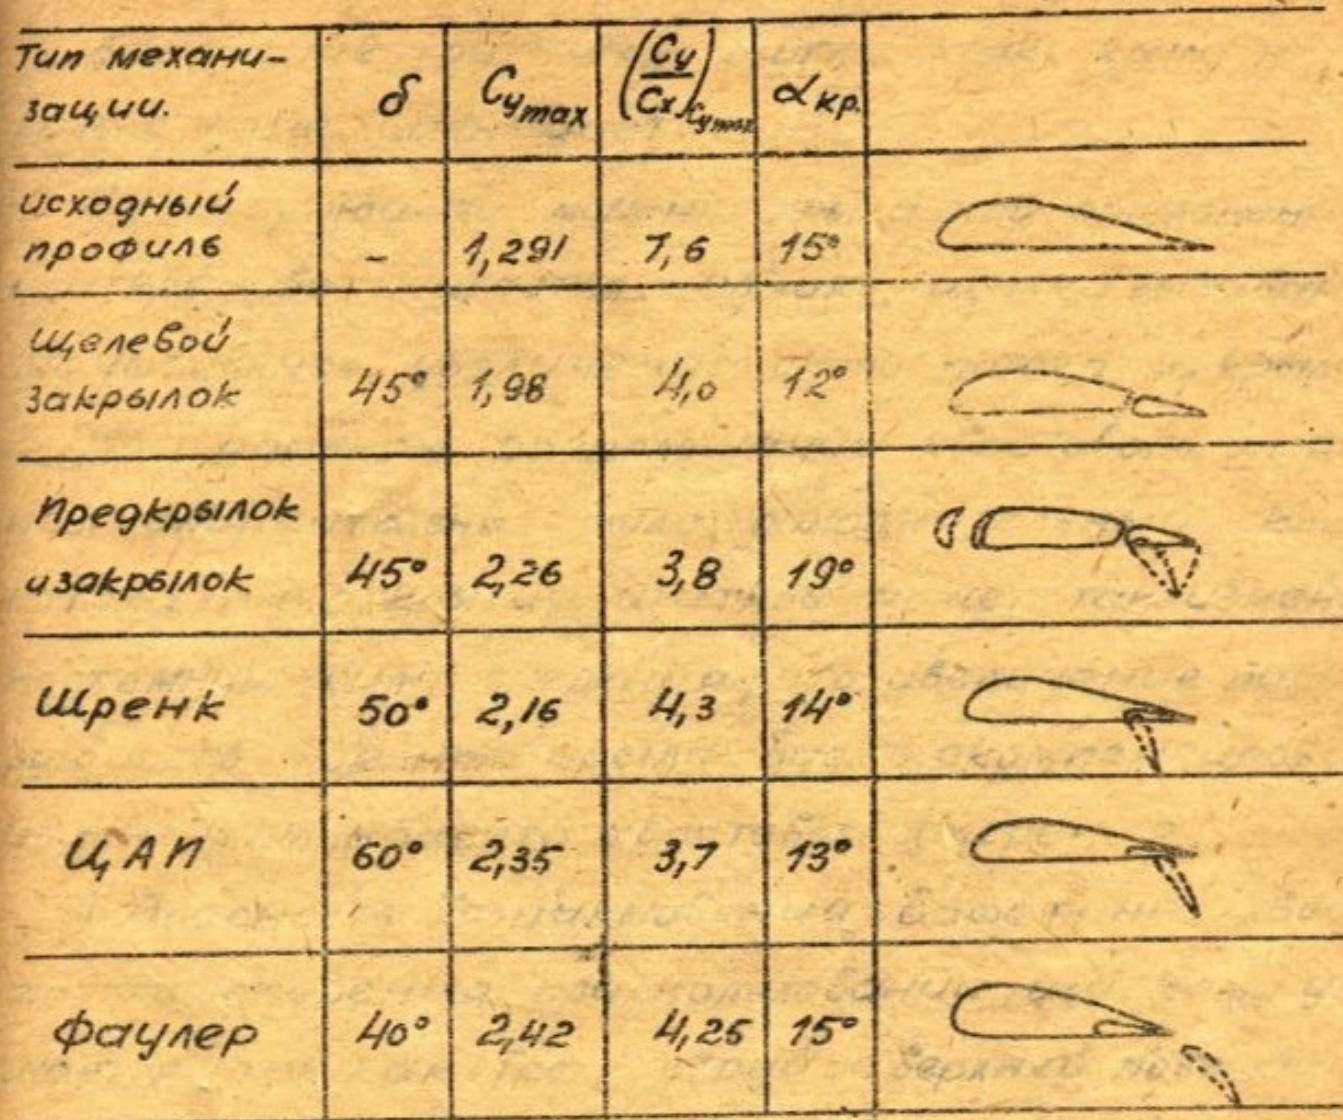 Тип механи- δ Cy max (Cy/Cx)Cy max α кр.
зации.
исходный
профиль - 1,291 7,6 15°
Щелевой
закрылок 45° 1,98 4,0 12°
Предкрылок
изакрылок 45° 2,26 3,8 19°
Шренк 50° 2,16 4,3 14°
ЦАП 60° 2,35 3,7 13°
Фаулер 40° 2,42 4,25 15°